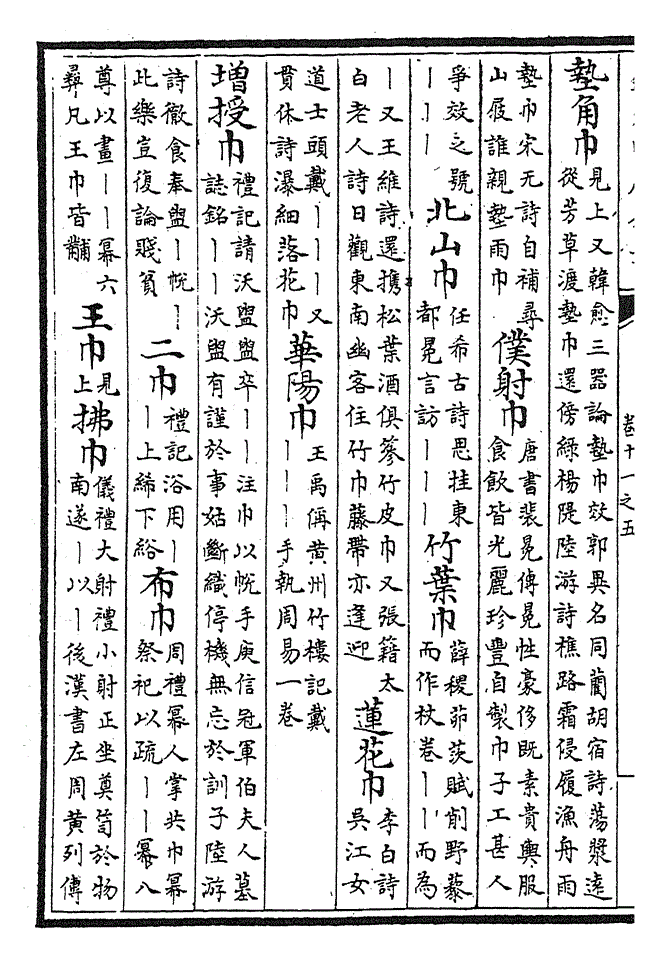 卷十一之五
墊角巾見上又韓愈三器論墊巾效郭異名同藺胡宿詩蕩槳遠從芳草渡墊巾還傍綠楊隄陸游詩樵路霜侵履漁舟雨
墊巾宋无詩自補尋山屐誰親墊雨巾 僕射巾唐書裴冕傳冕性豪侈既素貴輿服食飲皆光麗珍豐自製巾子工甚人
爭效之號｜｜｜ 北山巾任希古詩思挂東都冕言訪｜｜｜ 竹葉巾薛稷茆茨賦削野藜而作杖卷｜｜而為
｜又王維詩還攜松葉酒俱篸竹皮巾又張籍太白老人詩日觀東南幽客住竹巾藤帶亦逢迎 蓮花巾李白詩吳江女
道士頭戴｜｜｜又貫休詩瀑細落花巾 華陽巾王禹偁黃州竹樓記戴｜｜｜手執周易一卷
增授巾禮記請沃盥盥卒｜｜注巾以帨手庾信冠軍伯夫人墓誌銘｜｜沃盥有謹於事姑斷織停機無忘於訓子陸游
詩徹食奉盥｜帨｜此樂豈復論賤貧 二巾禮記浴用｜｜上絺下綌 布巾周禮冪人掌共巾冪祭祀以疏｜｜冪八
尊以畫｜｜冪六彝凡王巾皆黼 王巾見上 拂巾儀禮大射禮小射正坐奠笥於物南遂｜以｜後漢書左周黃列傳